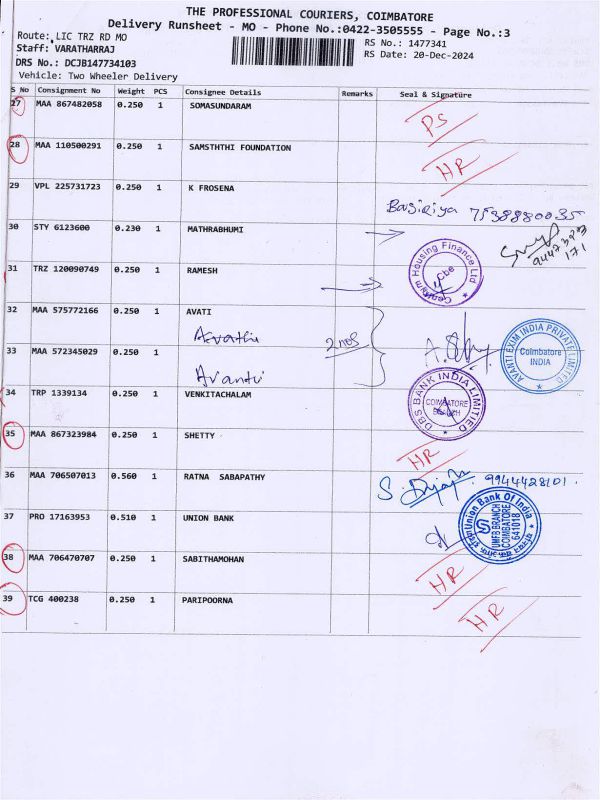 THE PROFESSIONAL COURIERS, COIMBATORE
Delivery Runsheet - MO - Phone No.:0422-3505555 - Page No.:3
Route: LIC TRZ RD MO
RS No.: 1477341
Staff: VARATHARRAJ
RS Date: 20-Dec-2024
DRS No.: DCJB147734103
Vehicle: Two Wheeler Delivery
S No Consignment No Weight PCS Consignee Details Remarks Seal & Signature
27 MAA 867482058 0.250 1 SOMASUNDARAM
PS
28 MAA 110500291 0.250 1 SAMSTHTHI FOUNDATION
HR
29 VPL 225731723 0.250 1 K FROSENA
7538880035
30 STY 6123600 0.230 1 MATHRABHUMI
31 TRZ 120090749 0.250 1 RAMESH
Housing Finance Ltd
Cbe
32 MAA 575772166 0.250 1 AVATI
2 nos
33 MAA 572345029 0.250 1 AVANTI
Avanti
AVANTI EXIM INDIA PRIVATE LIMITED
Coimbatore
INDIA
34 TRP 1339134 0.250 1 VENKITACHALAM
DBS BANK INDIA LIMITED
COIMBATORE
BRANCH
35 MAA 867323984 0.250 1 SHETTY
HR
36 MAA 706507013 0.560 1 RATNA SABAPATHY
9944428101.
37 PRO 17163953 0.510 1 UNION BANK
Union Bank Of India
UMFB BRANCH
COIMBATORE
641018
38 MAA 706470707 0.250 1 SABITHAMOHAN
HR
39 TCG 400238 0.250 1 PARIPOORNA
HR